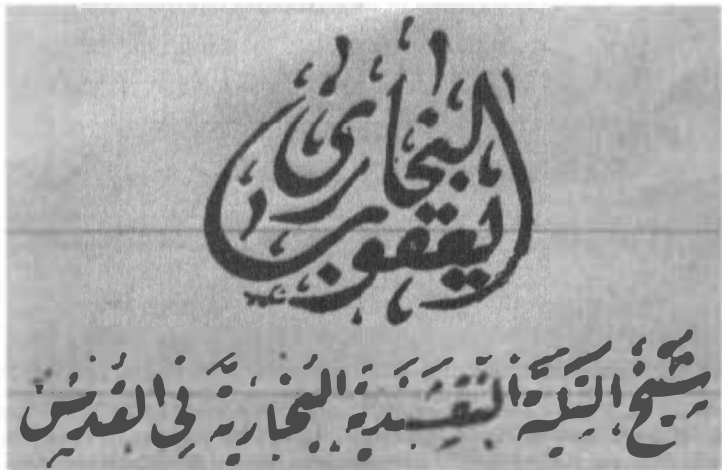 يعقوب البخاري
شيخ التكية النقشبندية البخارية في القدس